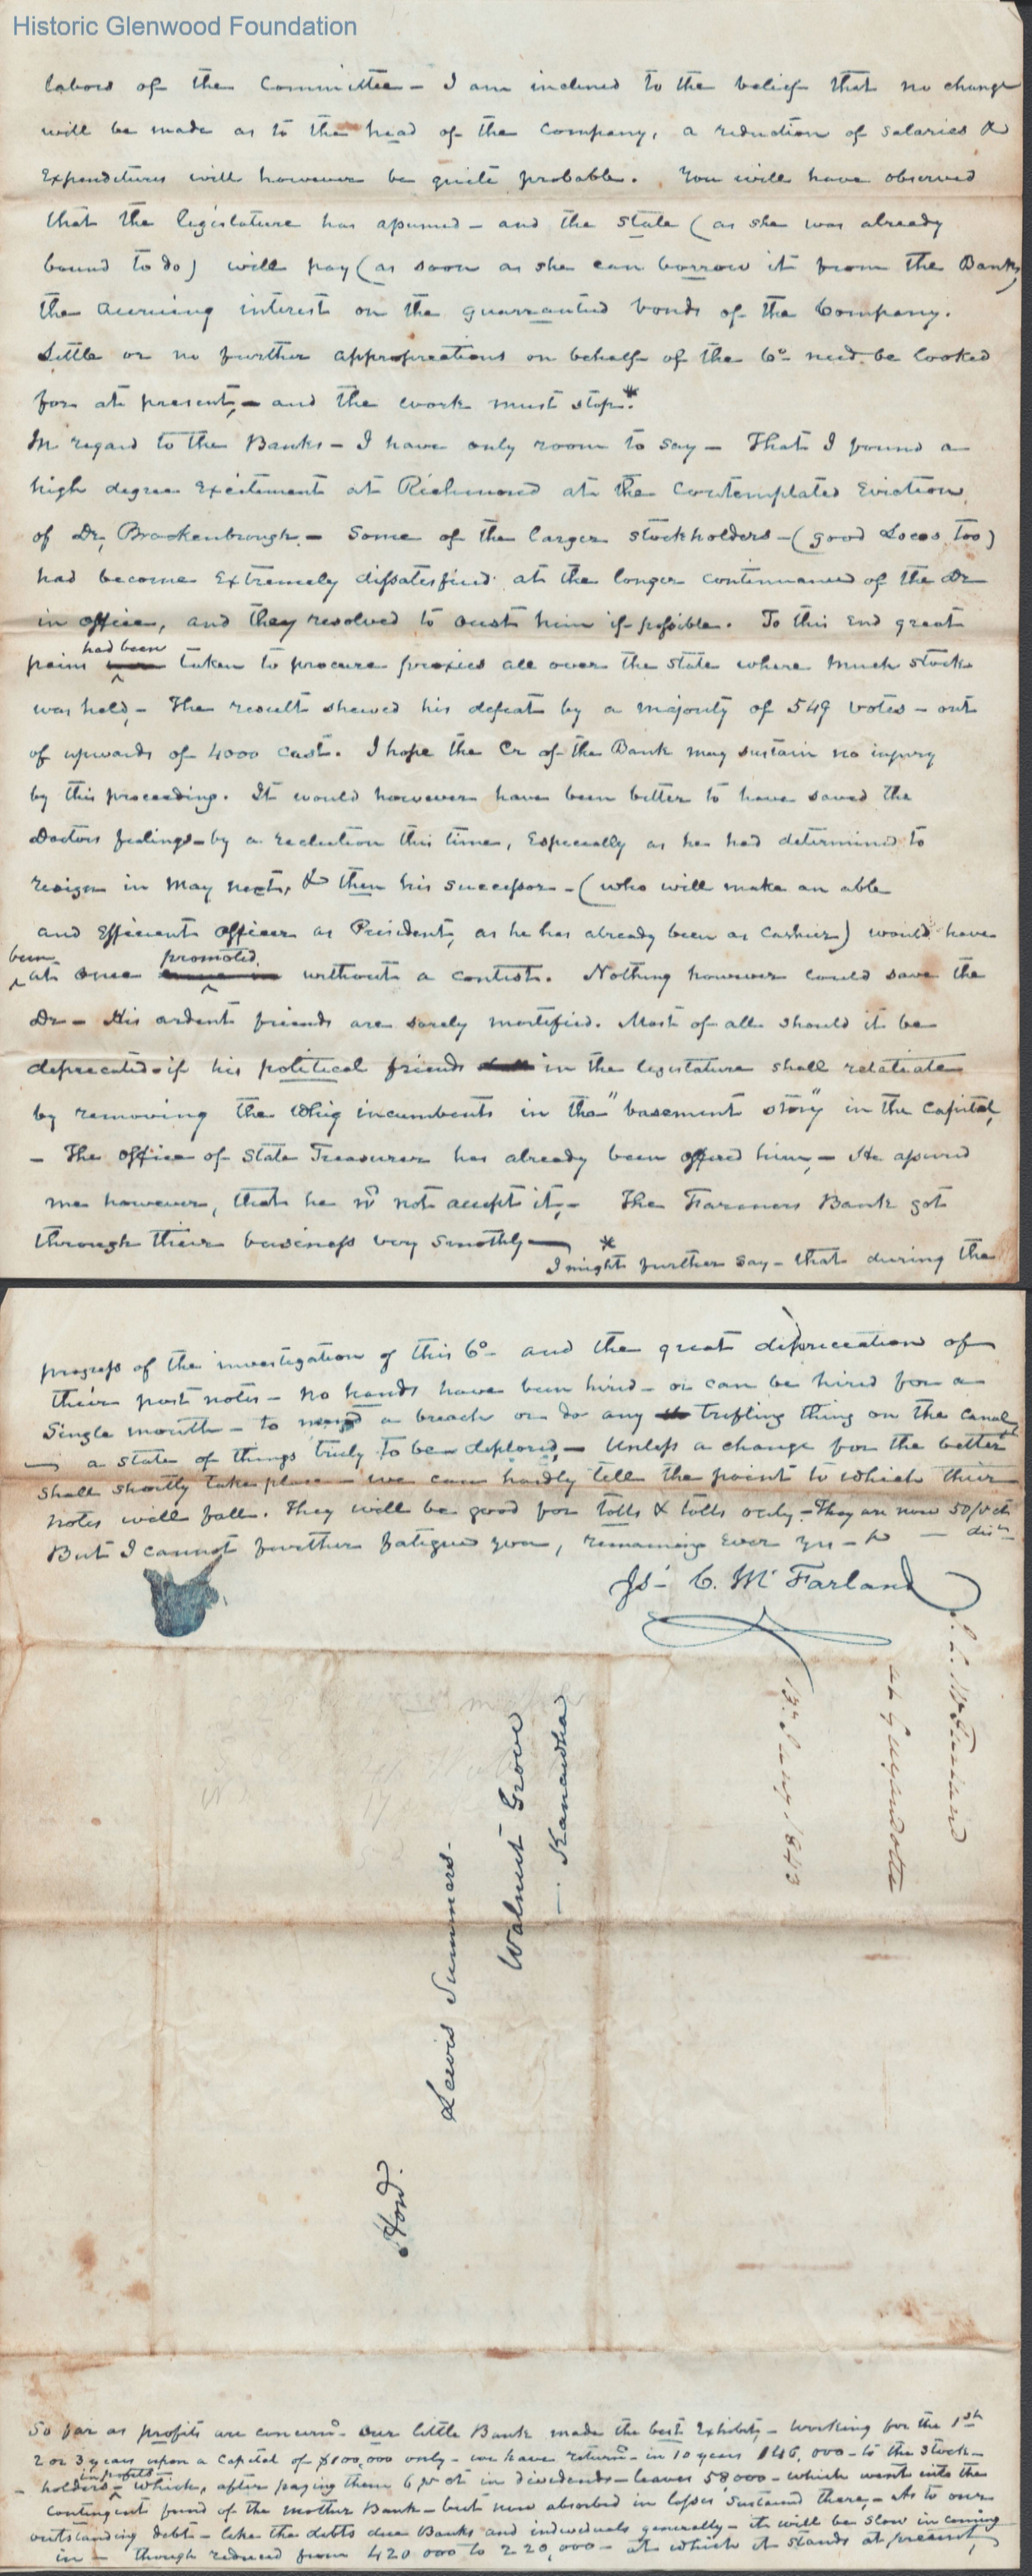 Historic Glenwood Foundation
labors of the Committee - I am inclined to the belief that no change
will be made as to the head of the Company, a reduction of salaries &
Expenditures will however be quite probable. You will have observed
that the legislature has assumed - and the state (as she was already
bound to do) will pay (as soon as she can borrow it from the Banks)
the accruing interest on the guarrantied bonds of the Company.
Little or no further appropreations on behalf of the Co need be looked
for at present, - and the work must stop.*
In regard to the Banks - I have only room to say - That I found a
high degree Excitement at Richmond at the Contemplated Eviction
of Dr, Brockenbrough. - Some of the larger stockholders - (good Locos too)
had become Extremely dissatisfied at the longer continuance of the Dr
in office, and they resolved to oust him if possible. To this End great
had been
pains taken to procure proxies all over the state where much stock
was held, - The result shewed his defeat by a majority of 549 votes - out
of upwards of 4000 cast. I hope the Cr of the Bank may sustain no injury
by this proceeding. It would however have been better to have saved the
Doctors feelings - by a reelection this time, Especially as he had determined to
resign in May next, & then his successor - (who will make an able
and Efficient officer as President, as he has already been as Cashier) would have
been promoted
at once without a contest. Nothing however could save the
Dr - His ardent friends are sorely mortified. Most of all should it be
deprecated - if his political friends in the legistature shall relatiate
by removing the Whig incumbents in the "basement story" in the Capitol,
- The office of State Treasurer has already been offered him, - He assured
me however, that he wd not accept it, - The Farmers Bank got
through their business very smothly -
* I might further say - that during the
progress of the investigation of this Co - and the great depreceation of
their post notes - no hands have been hired - or can be hired for a
Single month - to mend a breach or do any trifling thing on the Canal
- a state of things truly to be deplored, - Unless a change for the better
shall shortly take place - we can hardly tell the point to which their
notes will fall. They will be good for tolls & tolls only. - They are now 50 pr ct
dist
But I cannot further fatigue you, remaining Ever yrs - &
Js - C. McFarland
J. C. McFarland
at Guyandotte
1843
Hon.
Lewis Summers.
Walnut Grove
- Kanawha
So far as profits are concernd - Our little Bank made the best Exhibit, - Working for the 1st
2 or 3 years upon a Capital of $100,000 only - we have returnd - in 10 years 146,000 - to the Stock-
in profits -
- holders - which, after paying them 6 pr ct in dividends - leaves 58,000 - which went into the
Contingent fund of the mother Bank - but now absorbed in losses Sustained there, - As to our
outstanding debt - like the debts due Banks and individuals generally - it will be Slow in coming
in - though reduced from 420 000 to 220,000 - at which it stands at present,